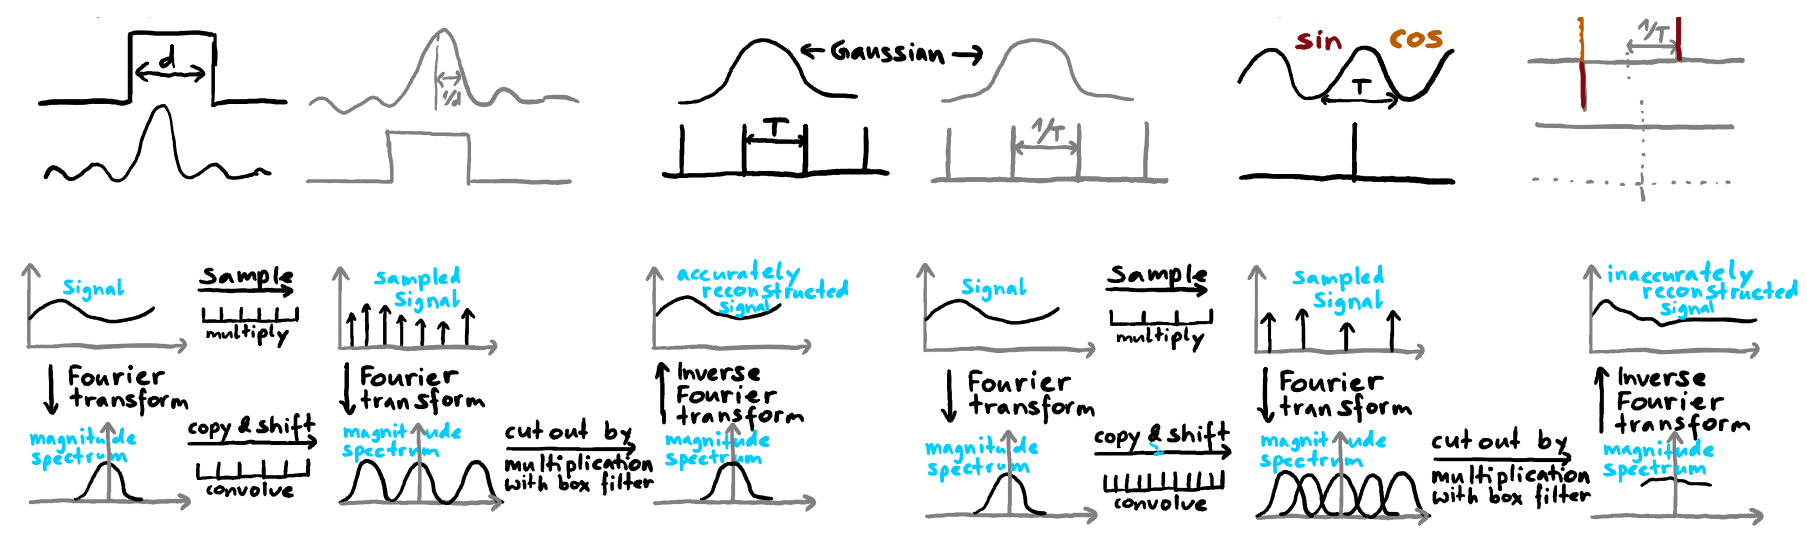 d
1/d
← Gaussian →
T
1/T
sin
cos
T
1/T
Signal
Sample
multiply
Sampled
Signal
accurately
reconstructed
signal
Fourier
transform
Fourier
transform
Inverse
Fourier
transform
magnitude
spectrum
copy & shift
convolve
magnitude
spectrum
cut out by
multiplication
with box filter
magnitude
spectrum
Signal
Sample
multiply
Sampled
Signal
inaccurately
reconstructed
signal
Fourier
transform
Fourier
transform
Inverse
Fourier
transform
magnitude
spectrum
copy & shift
convolve
magnitude
spectrum
cut out by
multiplication
with box filter
magnitude
spectrum